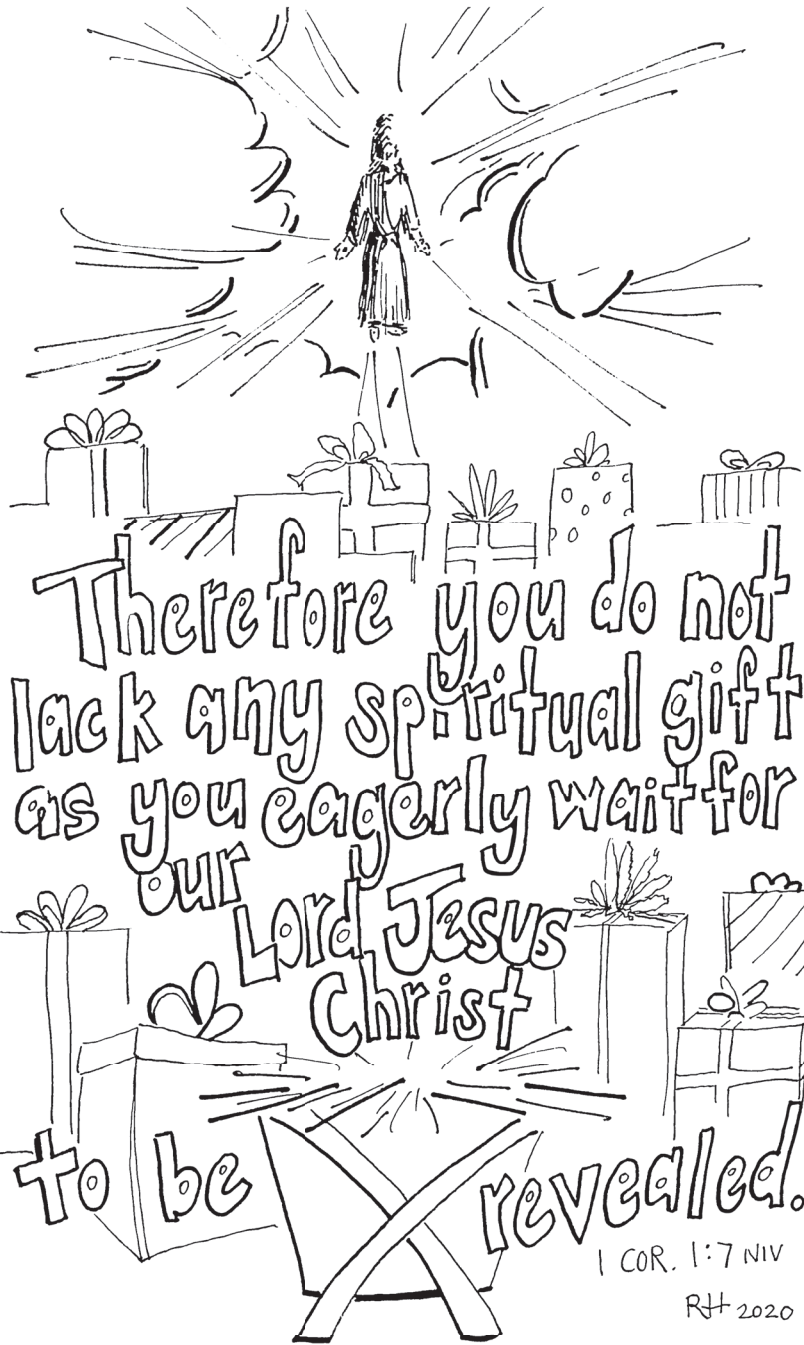 Therefore you do not
lack any spiritual gift
as you eagerly wait for
our
Lord Jesus
Christ
to be revealed.
1 COR. 1:7 NIV
RH 2020